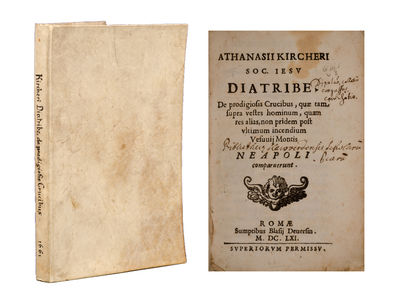 Kircheri Diatribe de prodigiosis Crucibus 1661
ATHANASII KIRCHERI
SOC. IESV
DIATRIBE
De prodigiosis Crucibus, quæ tam
supra vestes hominum, quam
res alias, non pridem post
vltimum incendium
Vesuuij Montis
NEAPOLI
comparuerunt.
ROMÆ
Sumptibus Blasij Deuersin.
M. DC. LXI.
SVPERIORVM PERMISSV.